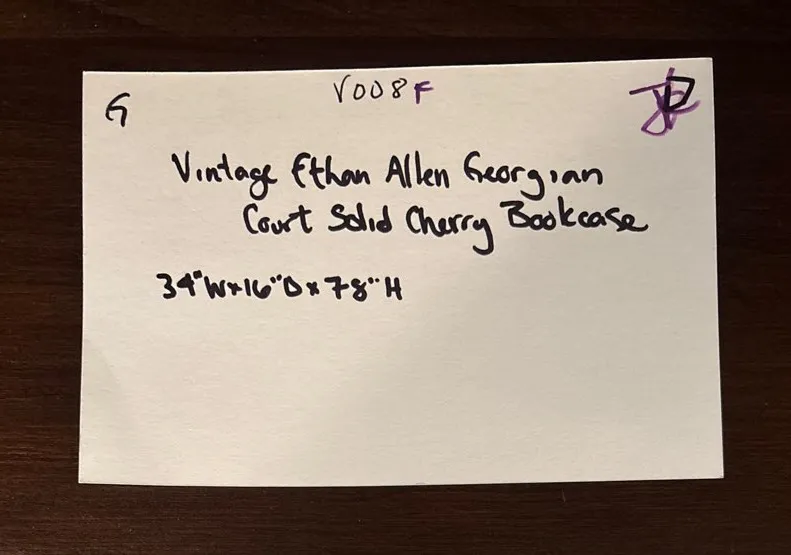 G
V008F
Vintage Ethan Allen Georgian
Court Solid Cherry Bookcase
34"W×16"D×78"H